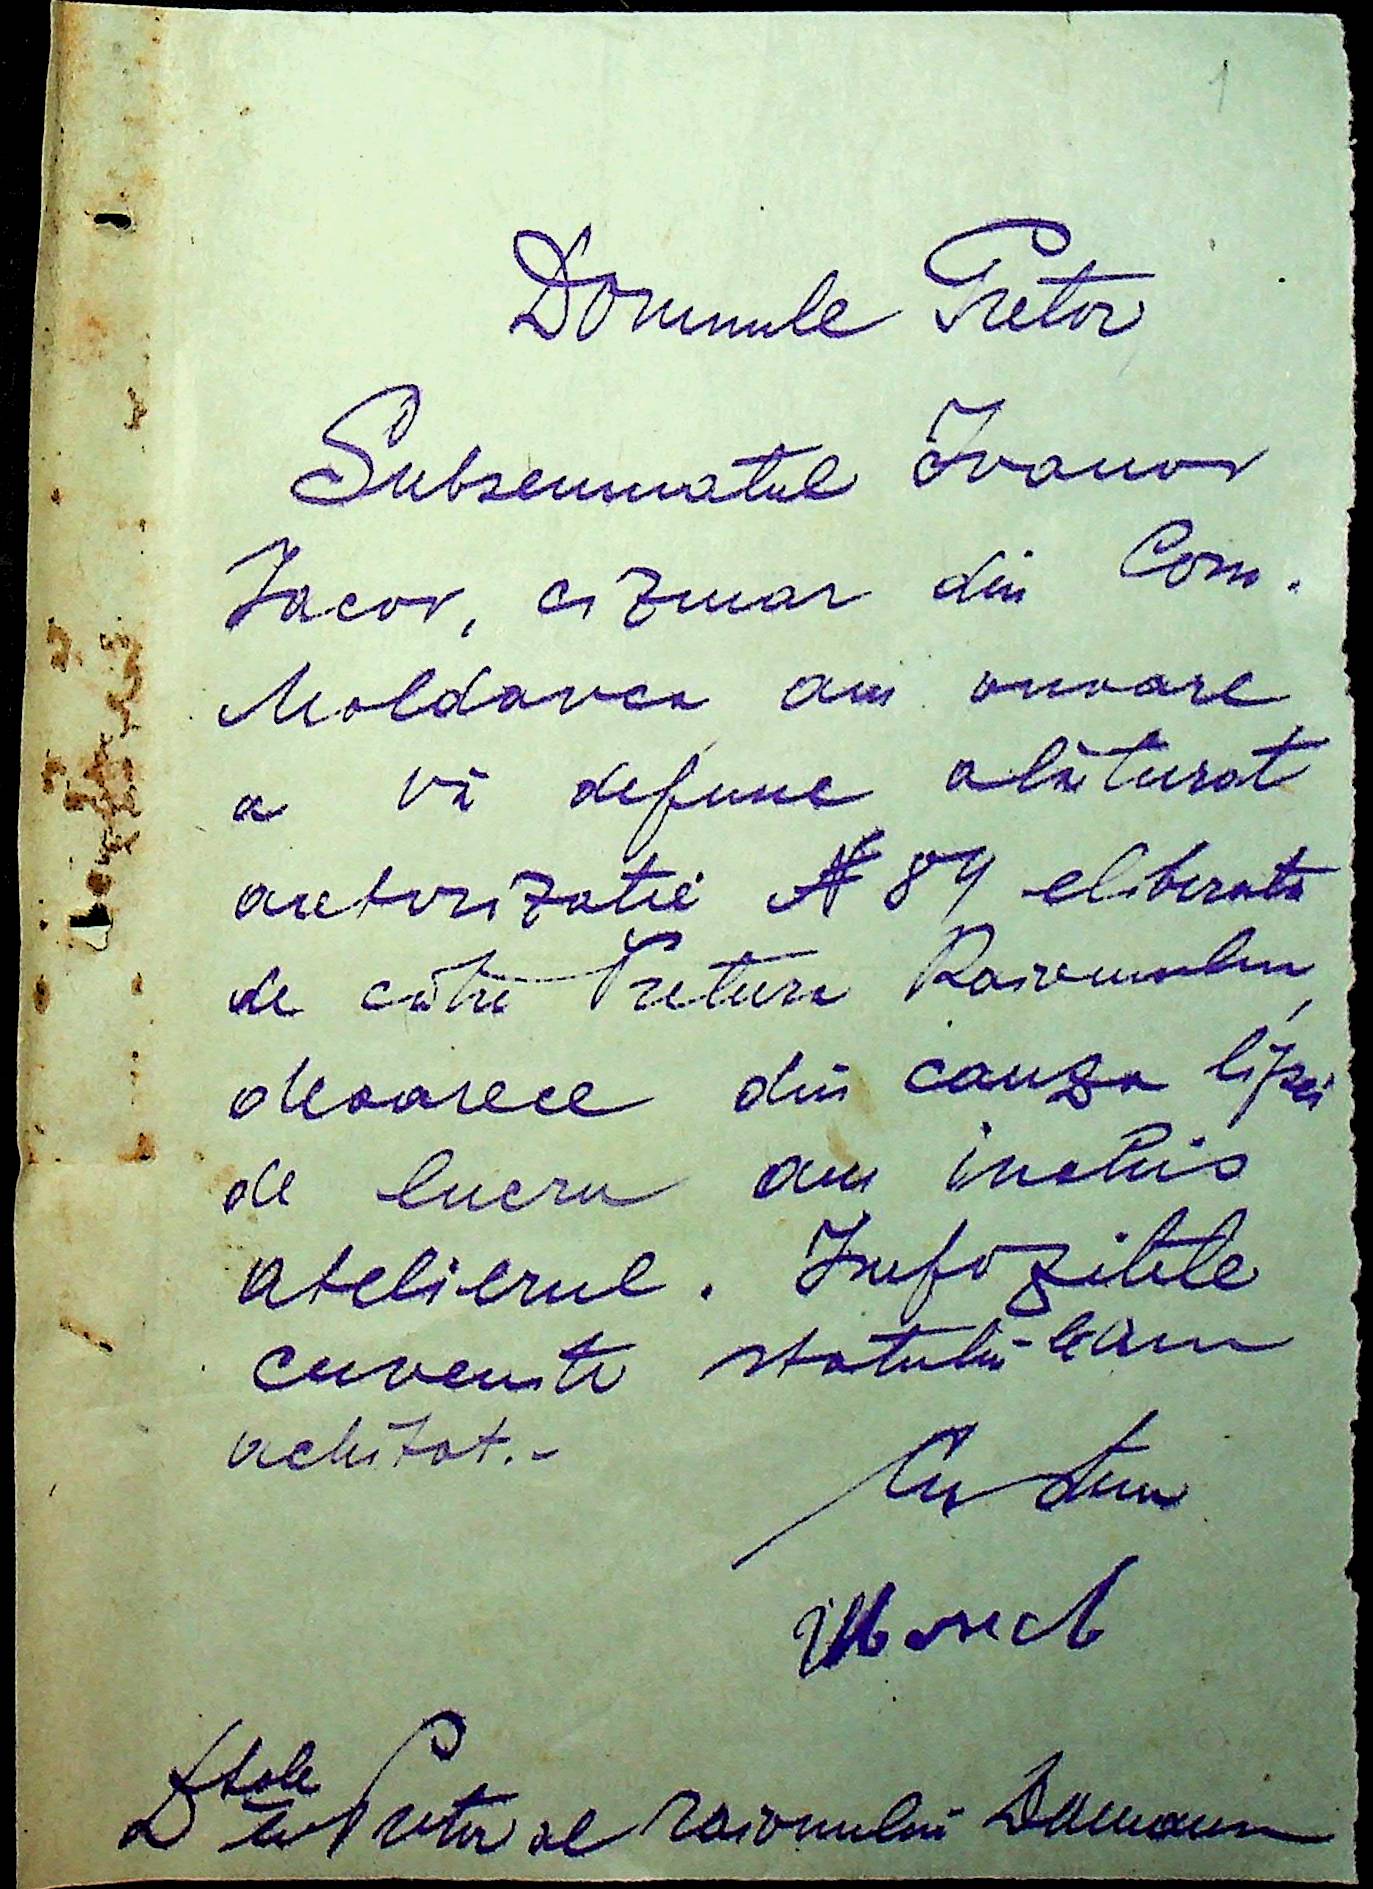 1
Domnule Pretor
Subsemnatul Ivanov
Iacov, cizmar din Com.
Moldavca am onoare
a vă depune alăturat
autorizatie № 89 eliberata
de cătri Pretura Raionului,
deoarece din cauza lipsei
de lucru am inchis
atelierul. Impozitele
cuvenite statului le am
achitat.-
Cu stima
Dtale
D Pretor al raionului